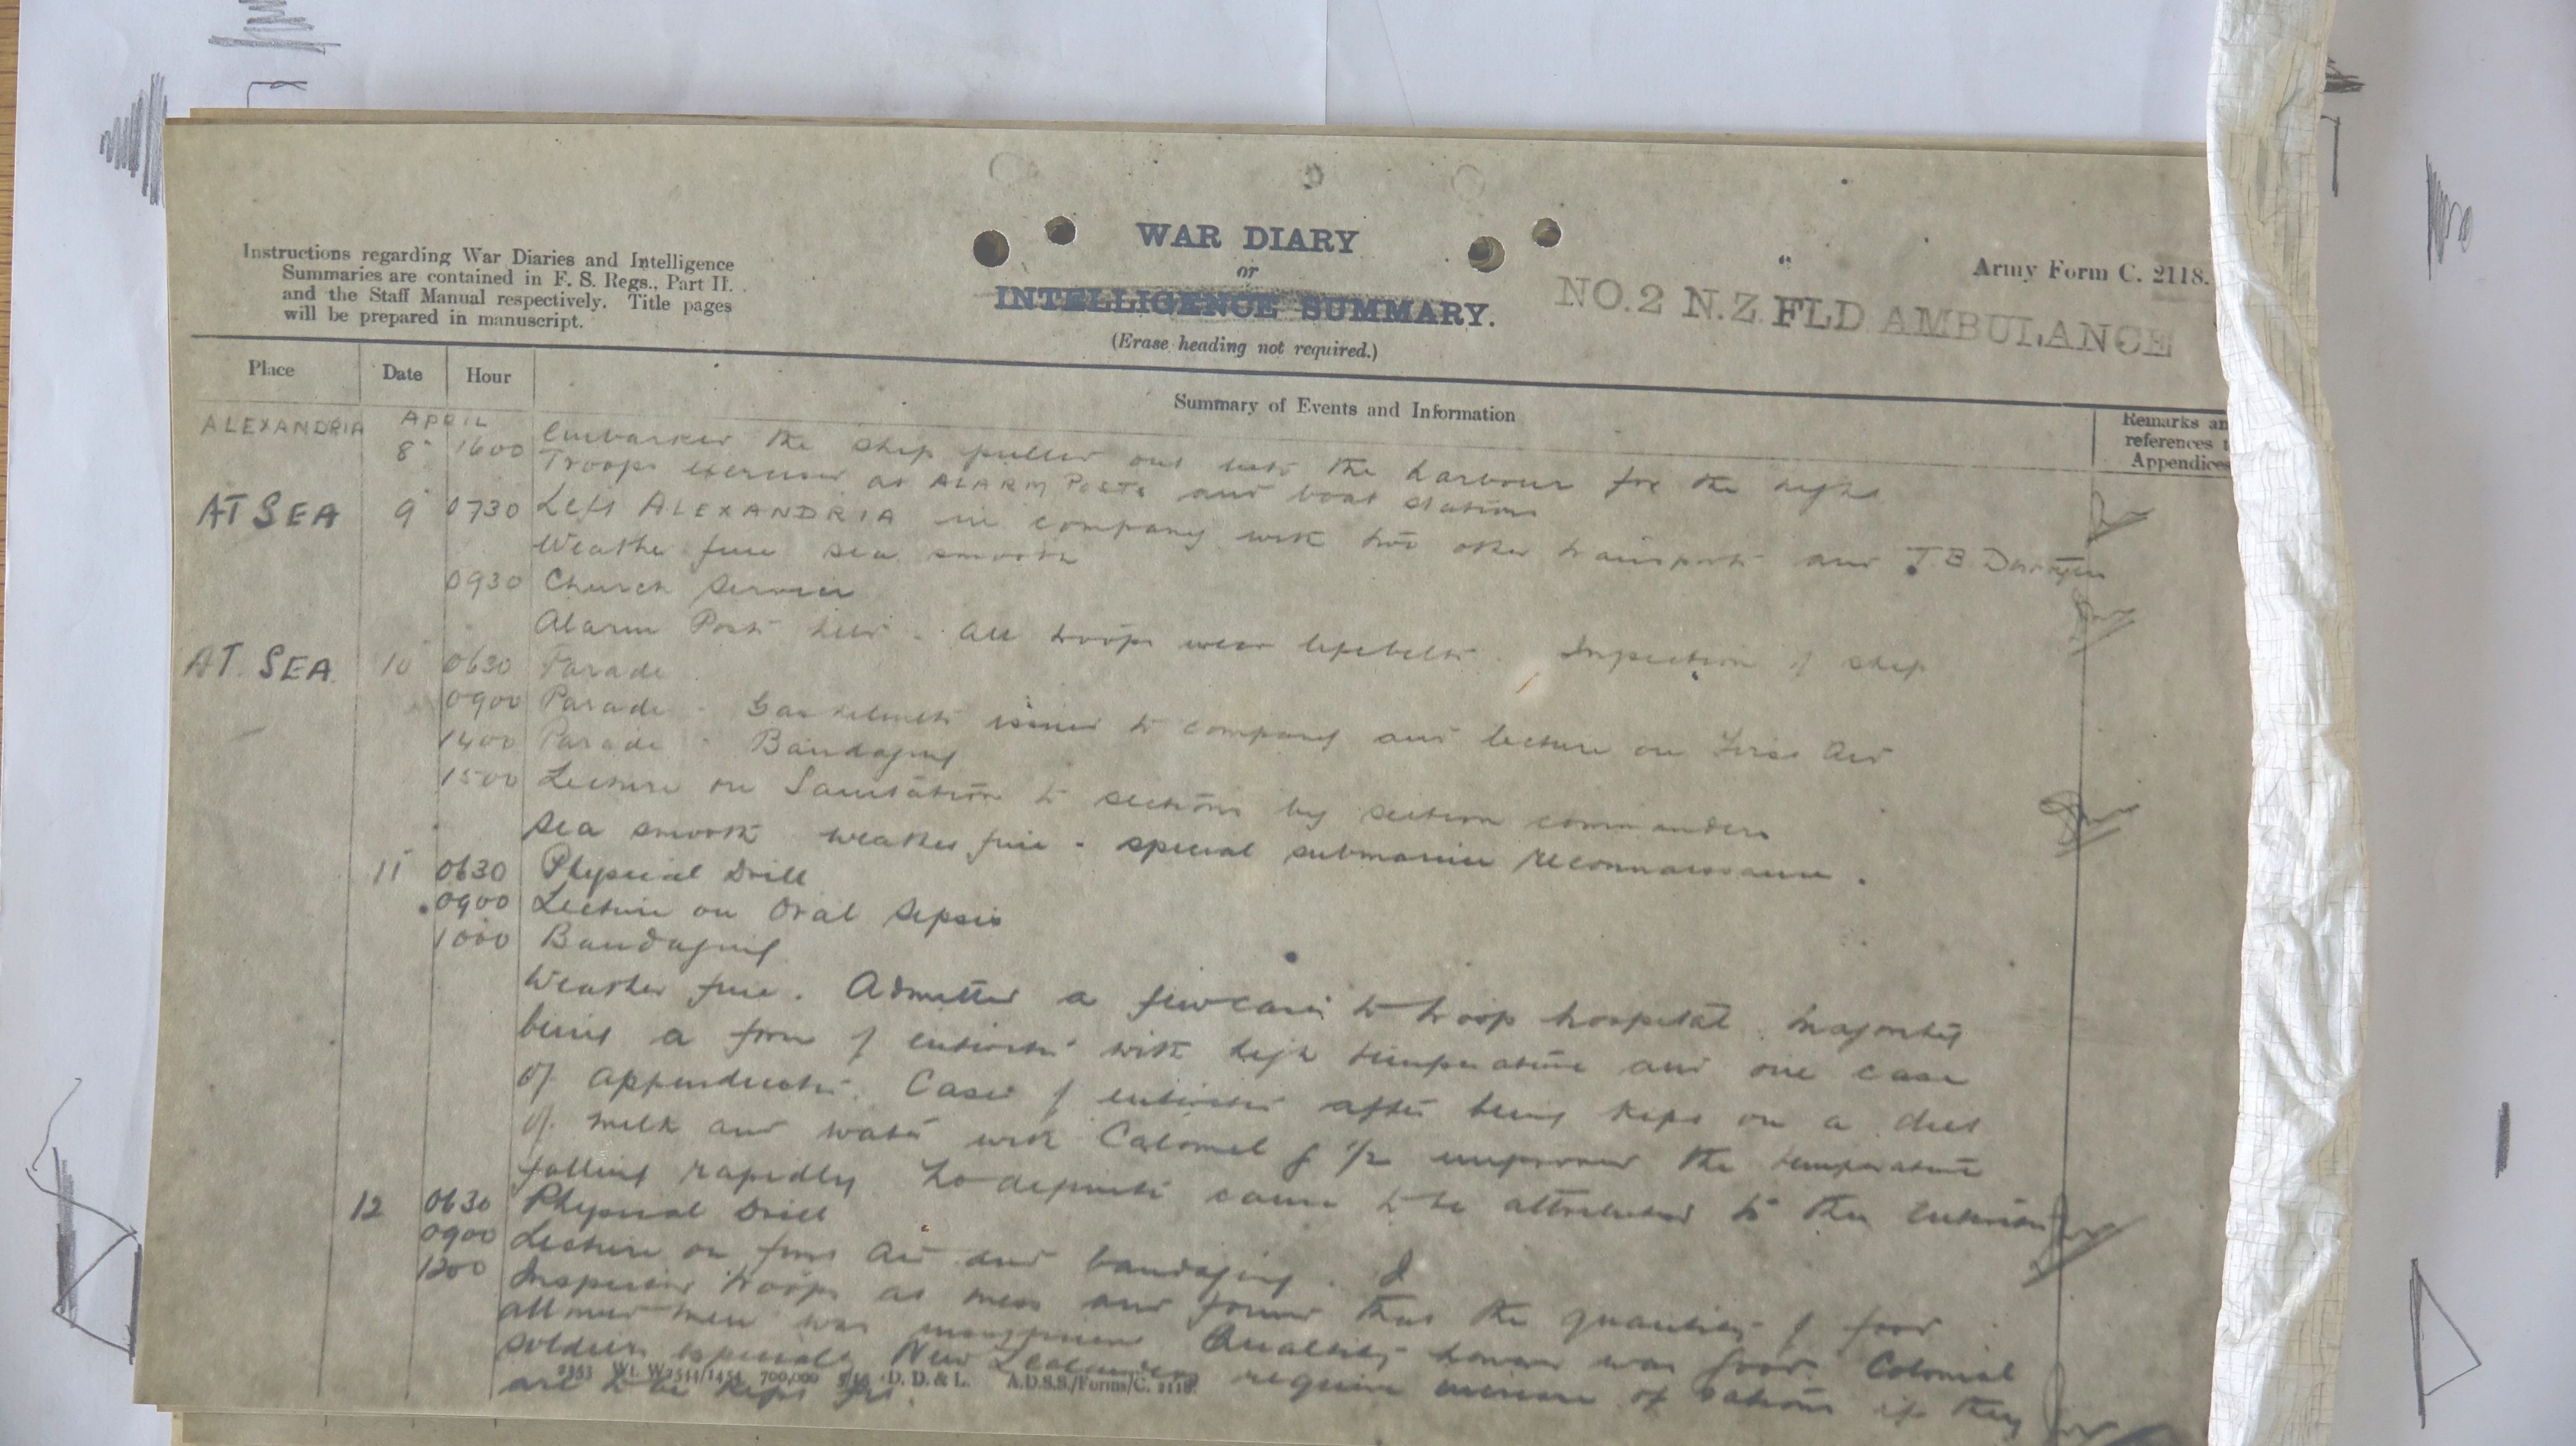 Instructions regarding War Diaries and Intelligence
Summaries are contained in F. S. Regs., Part II.
and the Staff Manual respectively. Title pages
will be prepared in manuscript.
WAR DIARY
or
INTELLIGENCE SUMMARY.
(Erase heading not required.)
Army Form C. 2118.
NO.2 N.Z. FLD AMBULANCE
Place Date Hour Summary of Events and Information
Remarks an
references t
Appendices
ALEXANDRIA APRIL
8 1600 Embarked the ship pulled out into the harbour for the night
Troops exercised at ALARM POSTS and boat stations
AT SEA 9 0730 Left ALEXANDRIA in company with two other transports and T B Destroyer
Weather fine sea smooth
0930 Church Service
Alarm Posts held - All troops wear lifebelts. Inspection of ship
AT SEA. 10 0630 Parade
0900 Parade - Gas helmets issued to company and lecture on First Aid
1400 Parade - Bandaging
1500 Lecture on Sanitation to sections by section commanders
Sea smooth weather fine - special submarine reconnaissance.
11 0630 Physical Drill
0900 Lecture on Oral Sepsis
1000 Bandaging
Weather fine. Admitted a few cases to troop hospital. Majority
being a form of enteritis with high temperature and one case
of appendicitis. Cases of enteritis after being kept on a diet
of milk and water with Calomel g 1/2 improved the temperature
falling rapidly No definite cause to be attributed to the enteritis
12 0630 Physical Drill
0900 Lecture on first aid and bandaging. I
1200 Inspected troops at mess and found that the quantity of food
allowed men was insufficient Quality however was good. Colonial
soldiers especially New Zealanders require increase of rations if they
are to be kept fit.
2353 Wt. W2544/1454 700,000 5/15 D. D. & L. A.D.S.S./Forms/C. 2118.